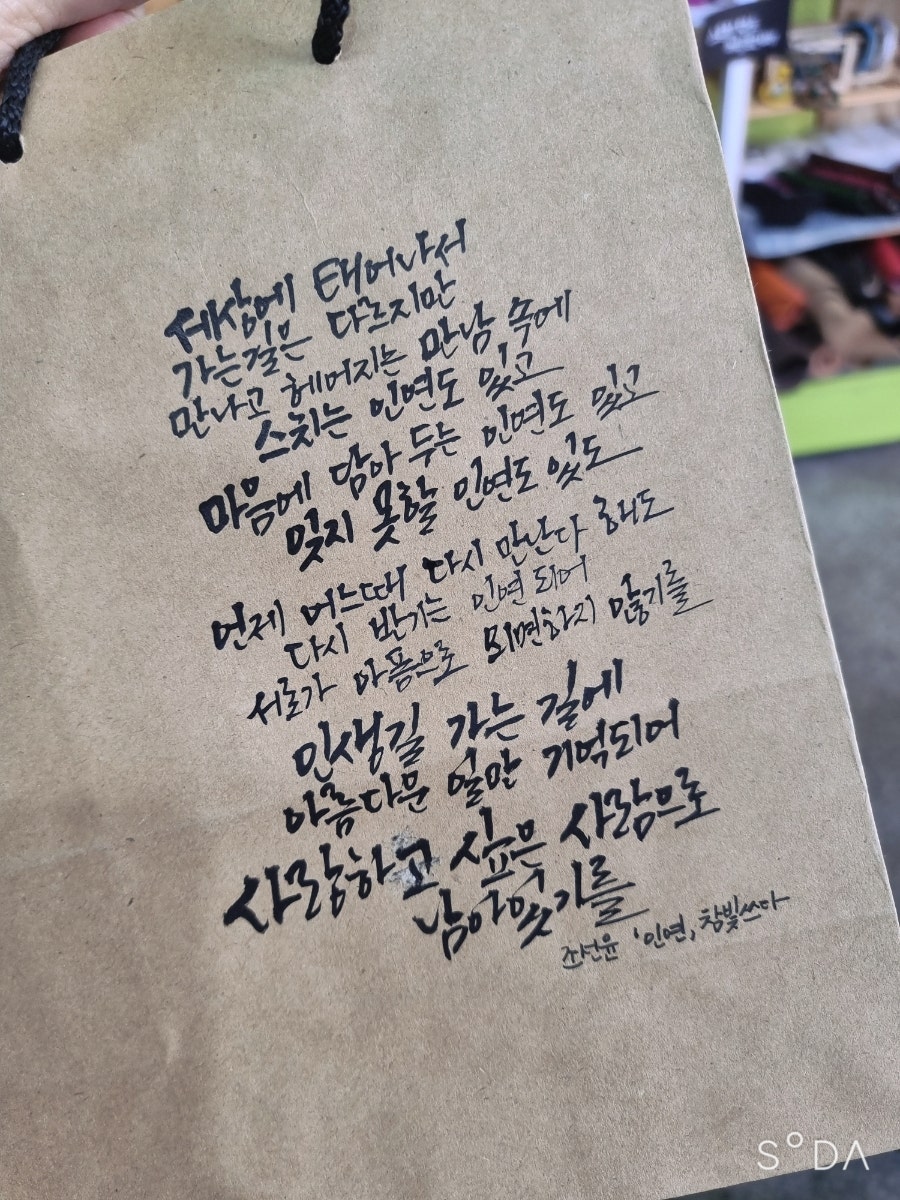 세상에 태어나서
가는길은 다르지만
만나고 헤어지는 만남 속에
스치는 인연도 있고
마음에 담아 두는 인연도 있고
잊지 못할 인연도 있도
언제 어느때 다시 만난다 해도
다시 반기는 인연 되어
서로가 아픔으로 외면하지 않기를
인생길 가는 길에
아름다운 일만 기억되어
사랑하고 싶은 사람으로
남아있기를
조선윤 '인연, 참빛쓰다
SODA